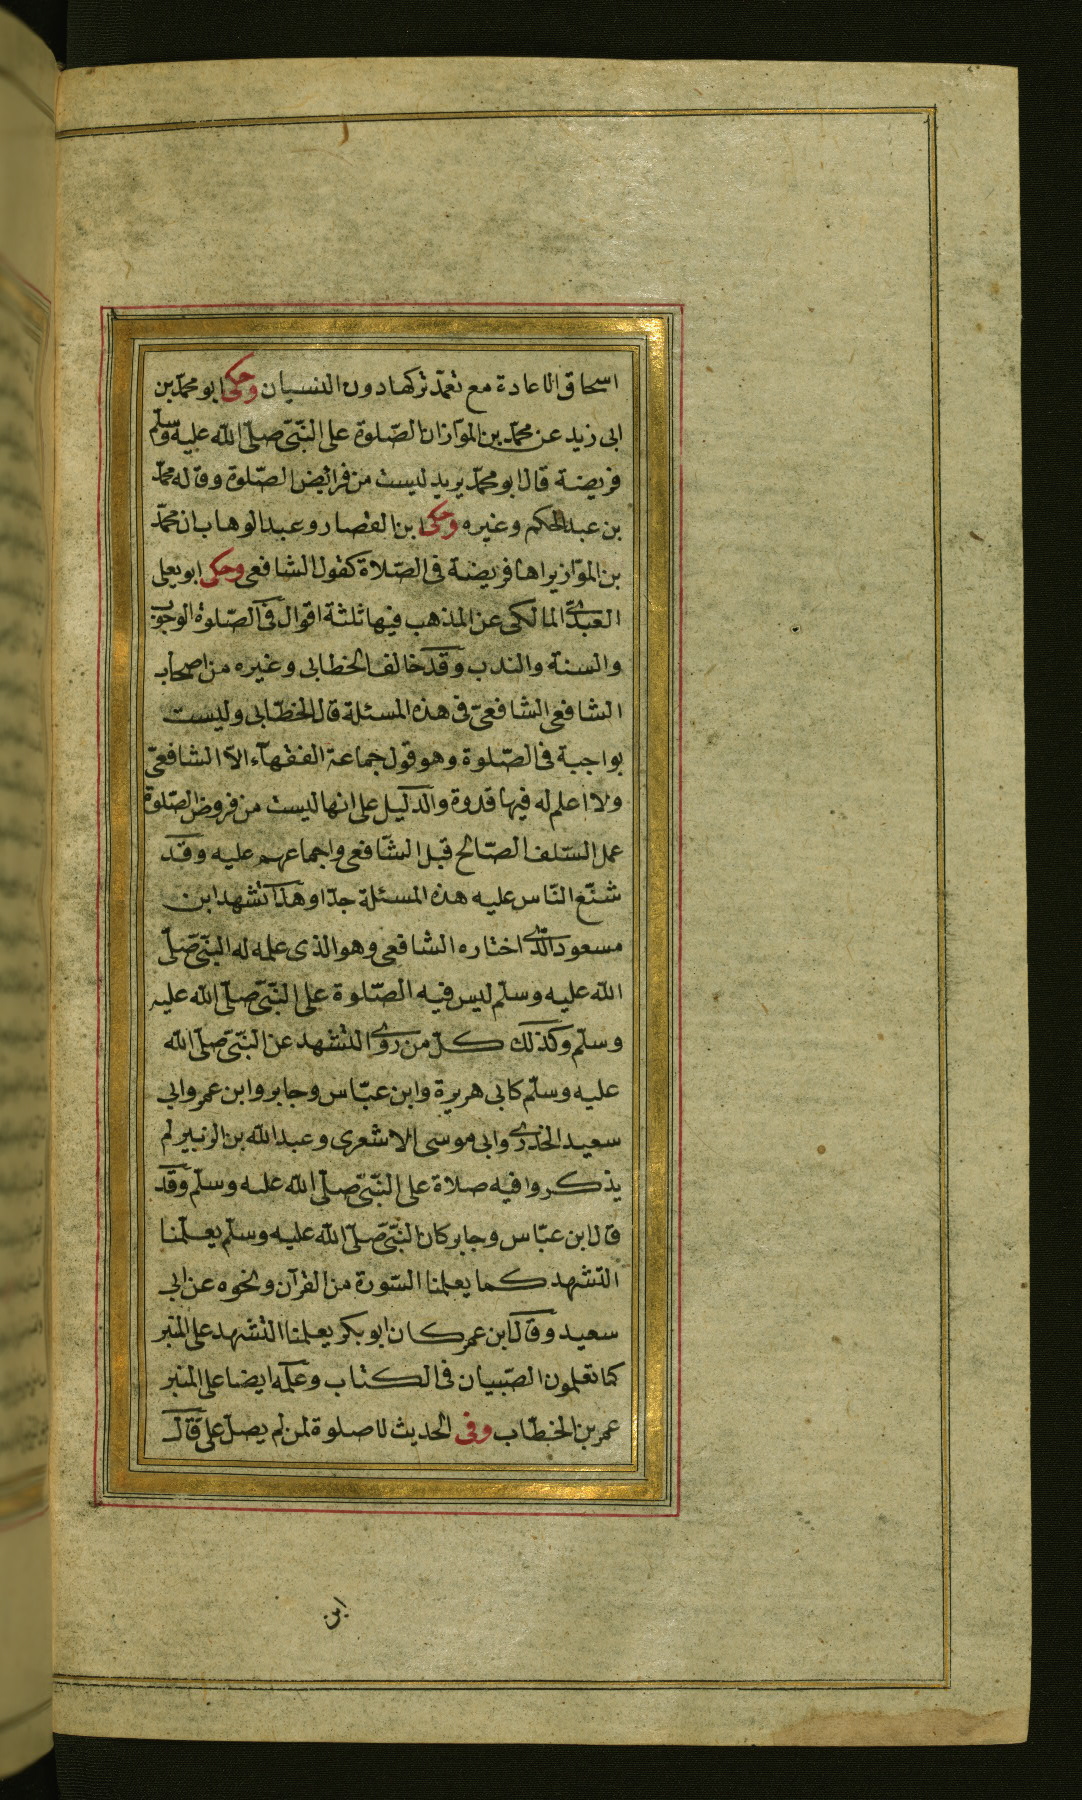 اسحاق الاعادة مع تعمّد تركها دون النسيان وحكى ابو محمّد بن
ابى زيد عن محمّد بن الموّاز ان الصّلوة على النّبىّ صلّى اللّه عليه وسلّم
فريضة قال ابو محمّد يريد ليست من فرائض الصّلوة وقاله محمّد
بن عبد الحكم وغيره وحكى ابن القصار وعبد الوهاب ان محمّد
بن الموّاز يراها فريضة فى الصّلاة كقول الشافعى وحكى ابو يعلى
العبدىّ المالكى عن المذهب فيها ثلثة اقوال فى الصّلوة الوجوب
والسنة والندب وقد خالف الخطابى وغيره من اصحاب
الشافعى الشافعىّ فى هذه المسئلة قال الخطّابى وليست
بواجبة فى الصّلوة وهو قول جماعة الفقهآء الّا الشافعىّ
ولا اعلم له فيها قدوة والدّليل على انها ليست من فروض الصّلوة
عمل السّلف الصّالح قبل الشّافعى واجماعهم عليه وقد
شنّع النّاس عليه هذه المسئلة جدّا وهذا تشهد ابن
مسعود الّذى اختاره الشافعى وهو الذى علمه له النّبىّ صلّى
اللّه عليه وسلّم ليس فيه الصّلوة على النّبىّ صلّى اللّه عليه
وسلّم وكذلك كلّ من روى التشهد عن النّبىّ صلّى اللّه
عليه وسلّم كابى هريرة وابن عبّاس وجابر وابن عمر وابى
سعيد الخدرى وابى موسى الاشعرى وعبد اللّه بن الزبير لم
يذكروا فيه صلاة على النّبىّ صلّى اللّه عليه وسلّم وقد
قال ابن عبّاس وجابر كان النّبىّ صلّى اللّه عليه وسلّم يعلّمنا
التشهد كما يعلمنا السّورة من القرآن ونحوه عن ابى
سعيد وقال ابن عمر كان ابو بكر يعلمنا التشهد على المنبر
كما تعلمون الصّبيان فى الكتاب وعلّمه ايضا على المنبر
عمر بن الخطّاب وفى الحديث لا صلوة لمن لم يصلّ علىّ قال
ابن